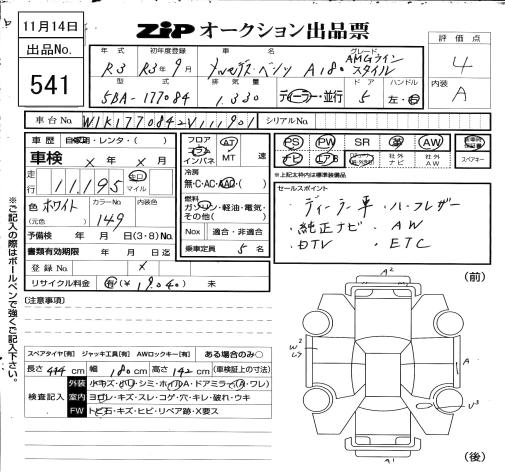 11月14日
出品No.
541
ZIP オークション出品票
評価点
4
内装
A
年式 初年度登録 車名 グレード
R3 R3年9月 メルセデス・ベンツ A180 AMGライン スタイル
型式 排気量 ドア ハンドル
5BA-177084 1.330 ディーラー・並行 5 左・右
車台No. W1K1770842V111901 シリアルNo.
車歴 自家用・レンタ・( )
車検 × 年 × 月
走行 11,195 キロ マイル
色 ホワイト カラーNo. 内装色
(元色) 149
予備検 年 月 日(3・8)No.
書類有効期限 年 月 日迄
登録No. ×
リサイクル料金 有(¥ 19,040) 未
フロア コラム インパネ AT MT 速
冷房
無・C・AC・AAC・( )
燃料
ガソリン・軽油・電気・
その他( )
Nox 適合・非適合
乗車定員 5 名
PS PW SR 革 AW
ナビ エアB 社外ナビ 社外AW
スペアキー
※上記太枠内は標準装備品
セールスポイント
・ディーラー車 ・ハーフレザー
・純正ナビ ・AW
・DTV ・ETC
※ご記入の際はボールペンで強くご記入下さい。
(注意事項)
スペアタイヤ[有] ジャッキ工具[有] AWロックキー[有] ある場合のみ○
長さ 444 cm 幅 180 cm 高さ 142 cm (車検証上の寸法)
検査記入
外装 小キズ・小ハリ・シミ・ホイルA・ドアミラー(A・ワレ)
室内 ヨゴレ・キズ・スレ・コゲ・穴・キレ・破れ・ウキ
FW トビ石・キズ・ヒビ・リペア跡・X要ス
(前)
A²
W²
A
U³
A¹
(後)